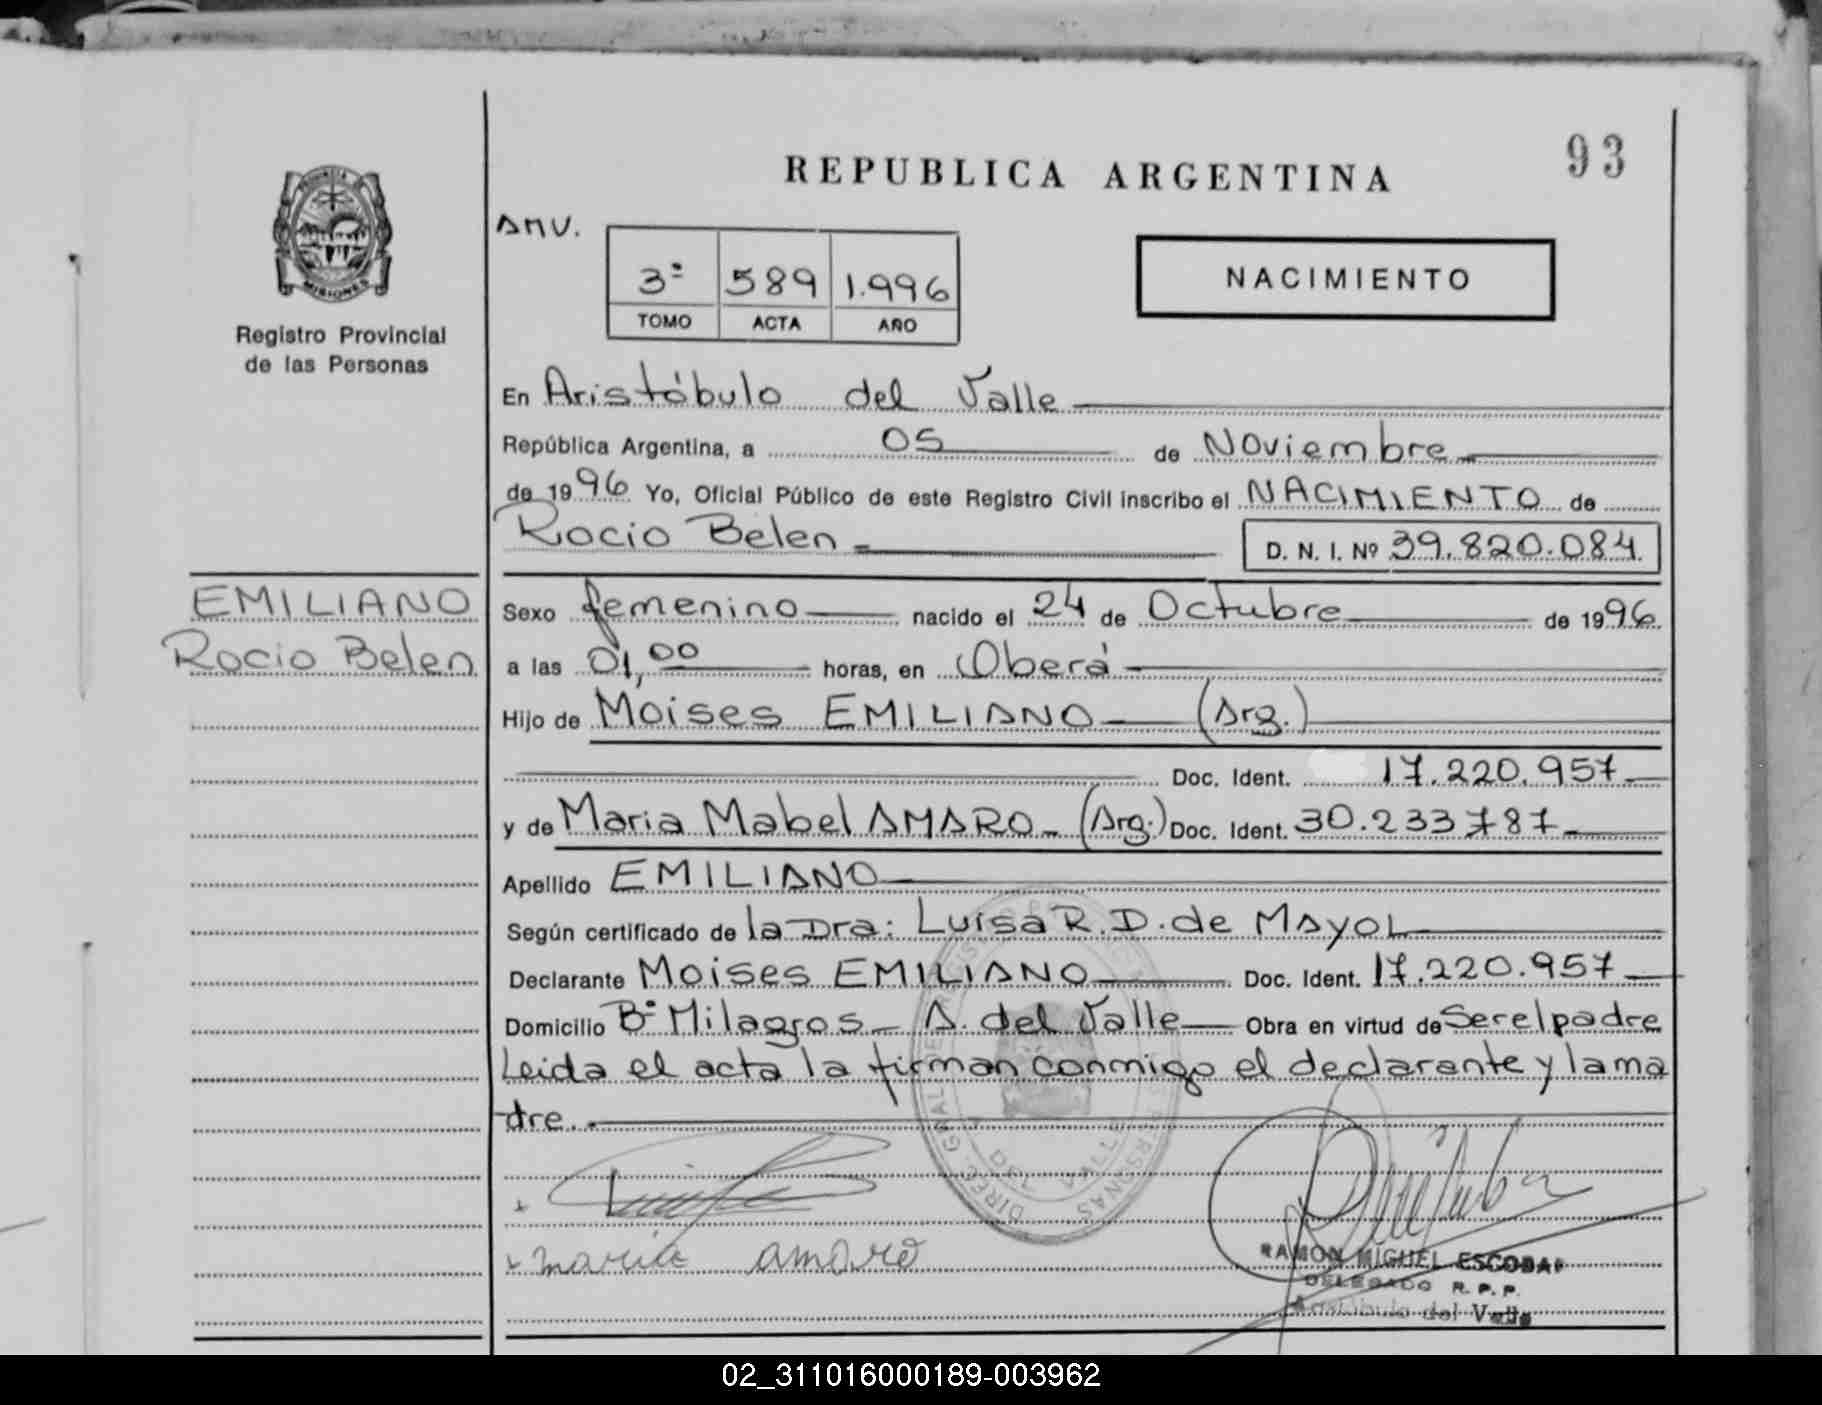 93
REPUBLICA ARGENTINA
PROVINCIA DE
MISIONES
Registro Provincial
de las Personas
AMV.
3º 589 1.996
TOMO ACTA AÑO
NACIMIENTO
En Aristóbulo del Valle
República Argentina, a 05 de Noviembre
de 1996 Yo, Oficial Público de este Registro Civil inscribo el NACIMIENTO de
Rocio Belen D. N. I. Nº 39.820.084
EMILIANO
Rocio Belen
Sexo femenino nacido el 24 de Octubre de 1996
a las 01,00 horas, en Oberá
Hijo de Moises EMILIANO (Arg.)
Doc. Ident. 17.220.957
y de Maria Mabel AMARO (Arg.) Doc. Ident. 30.233787
Apellido EMILIANO
Según certificado de la Dra: Luisa R. D. de MAYOL
Declarante Moises EMILIANO Doc. Ident. 17.220.957
Domicilio Bº Milagros A. del Valle Obra en virtud de Ser el padre
Leida el acta la firman conmigo el declarante y la ma
dre.
maria amaro
RAMON MIGUEL ESCOBAR
DELEGADO R. P. P.
Aristóbulo del Valle
02_311016000189-003962